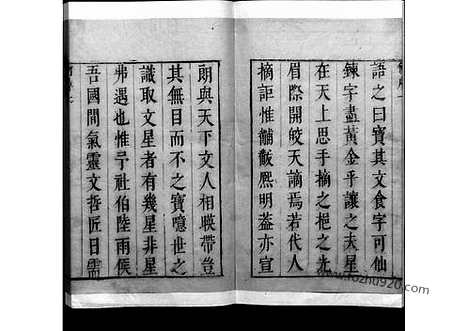 語之曰寶其文食字可仙
鍊字盡黃金乎讓之夫星
在天上思手摘之挹之先
眉際開皎天謫焉若代人
摘詎惟黼黻熙明蓋亦宣
朗與天下文人相暎帶豈
其無目而不之寶噫世之
識取文星者有幾星非星
弗遇也惟予社伯陸雨侯
吾國間氣靈文哲匠日
www.fozhu920.com